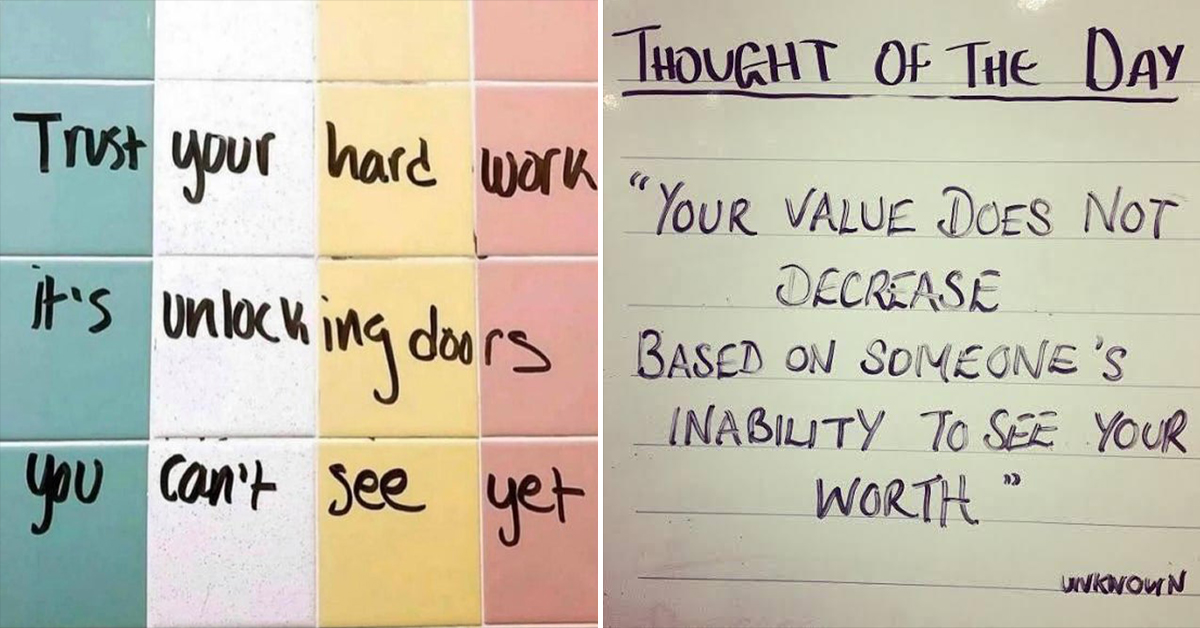 Trust your hard work
it's unlocking doors
you can't see yet
THOUGHT OF THE DAY
"YOUR VALUE DOES NOT
DECREASE
BASED ON SOMEONE'S
INABILITY TO SEE YOUR
WORTH"
UNKNOWN